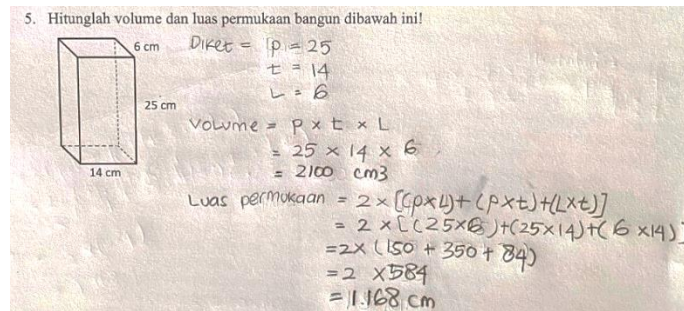 5. Hitunglah volume dan luas permukaan bangun dibawah ini!
6 cm
25 cm
14 cm
Diket = p = 25
t = 14
L = 6
Volume = p x t x L
= 25 x 14 x 6
= 2100 cm3
Luas permukaan = 2 x [(pxL)+(pxt)+(Lxt)]
= 2 x [(25x6)+(25x14)+(6x14)]
=2x (150 + 350 + 84)
=2 x584
= 1.168 cm